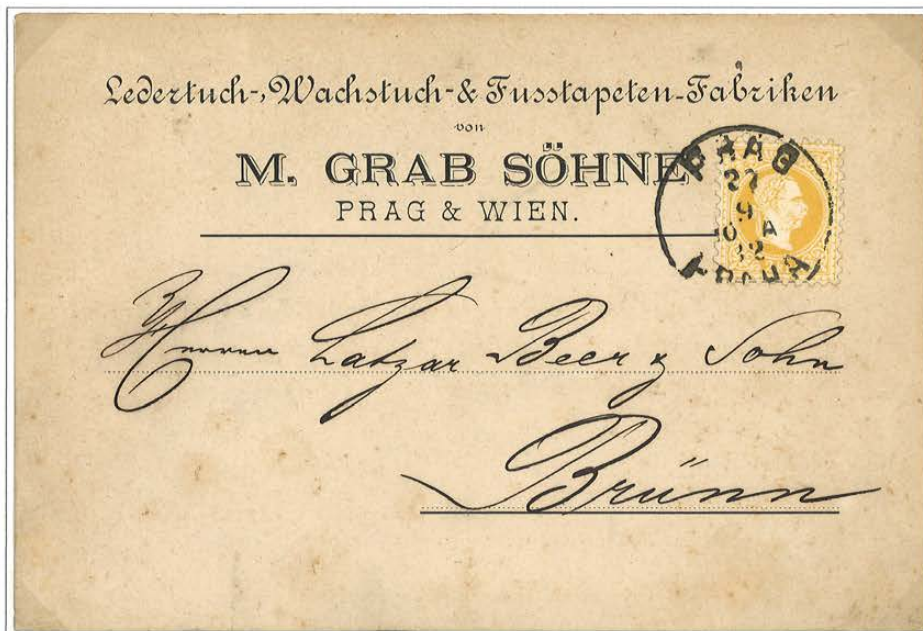 Ledertuch-, Wachstuch- & Fusstapeten-Fabriken
von
M. GRAB SÖHNE
PRAG & WIEN.
PRAG
27
9
A
PRAHA
Herren Latzar Beer & Sohn
Brünn